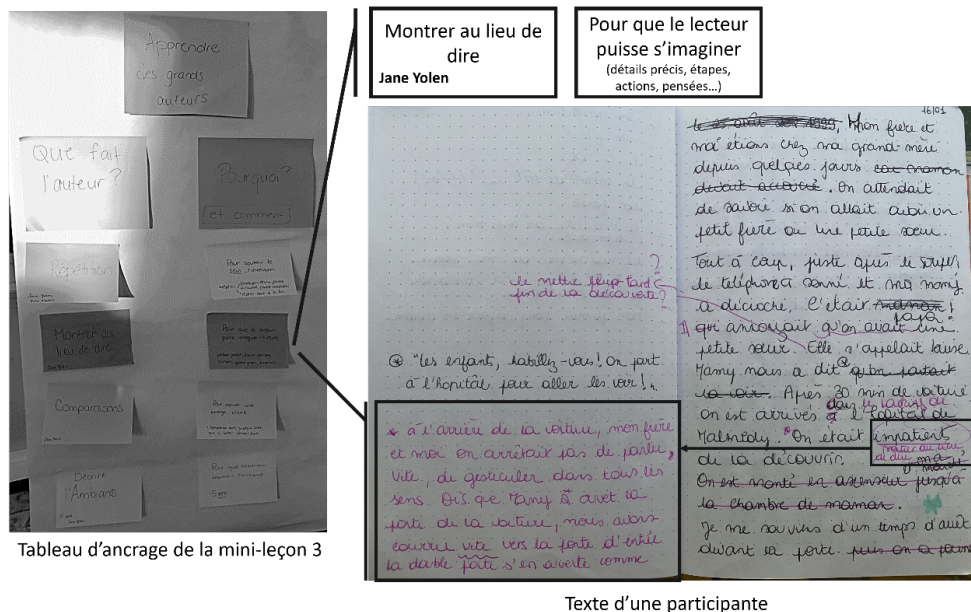 Apprendre
des grands
auteurs
Que fait
l'auteur ?
Pourquoi ?
et comment
Répétition
Montrer au
lieu de dire
Comparaisons
Décrire
l'Ambiance
Tableau d'ancrage de la mini-leçon 3
Montrer au lieu de
dire
Jane Yolen
Pour que le lecteur
puisse s'imaginer
(détails précis, étapes,
actions, pensées…)
?
le mettre plus tard
fin de la découverte?
* "Les enfants, habillez-vous! On part
à l'hôpital pour aller les voir!"
* à l'arrière de la voiture, mon frère
et moi on arrêtait pas de parler,
vite, de gesticuler dans tous les
sens. Dès que Mamy a
porte de la voiture, nous avons
courru vite vers la porte d'entrée
la double porte s'en comme
16/01
Mon frère et
moi étions chez ma grand-mère
depuis quelques jours car maman
devait accoucher. On attendait
de savoir si on allait avoir un
petit frère ou une petite sœur.
Tout à coup, juste après le souper,
le téléphone a sonné et ma mamy
a décroché. C'était papa!
qui annonçait qu'on avait une
petite sœur. Elle s'appelait Louise.
Mamy nous a dit * qu'on partait
la voir. Après 30 min de voiture
on est arrivés à l'hôpital de
Malmédy. * On était impatients
de la découvrir.
On est monté en ascenseur jusqu'à
la chambre de maman.
Je me souviens d'un temps d'arrêt
devant la porte. puis on a
Texte d'une participante